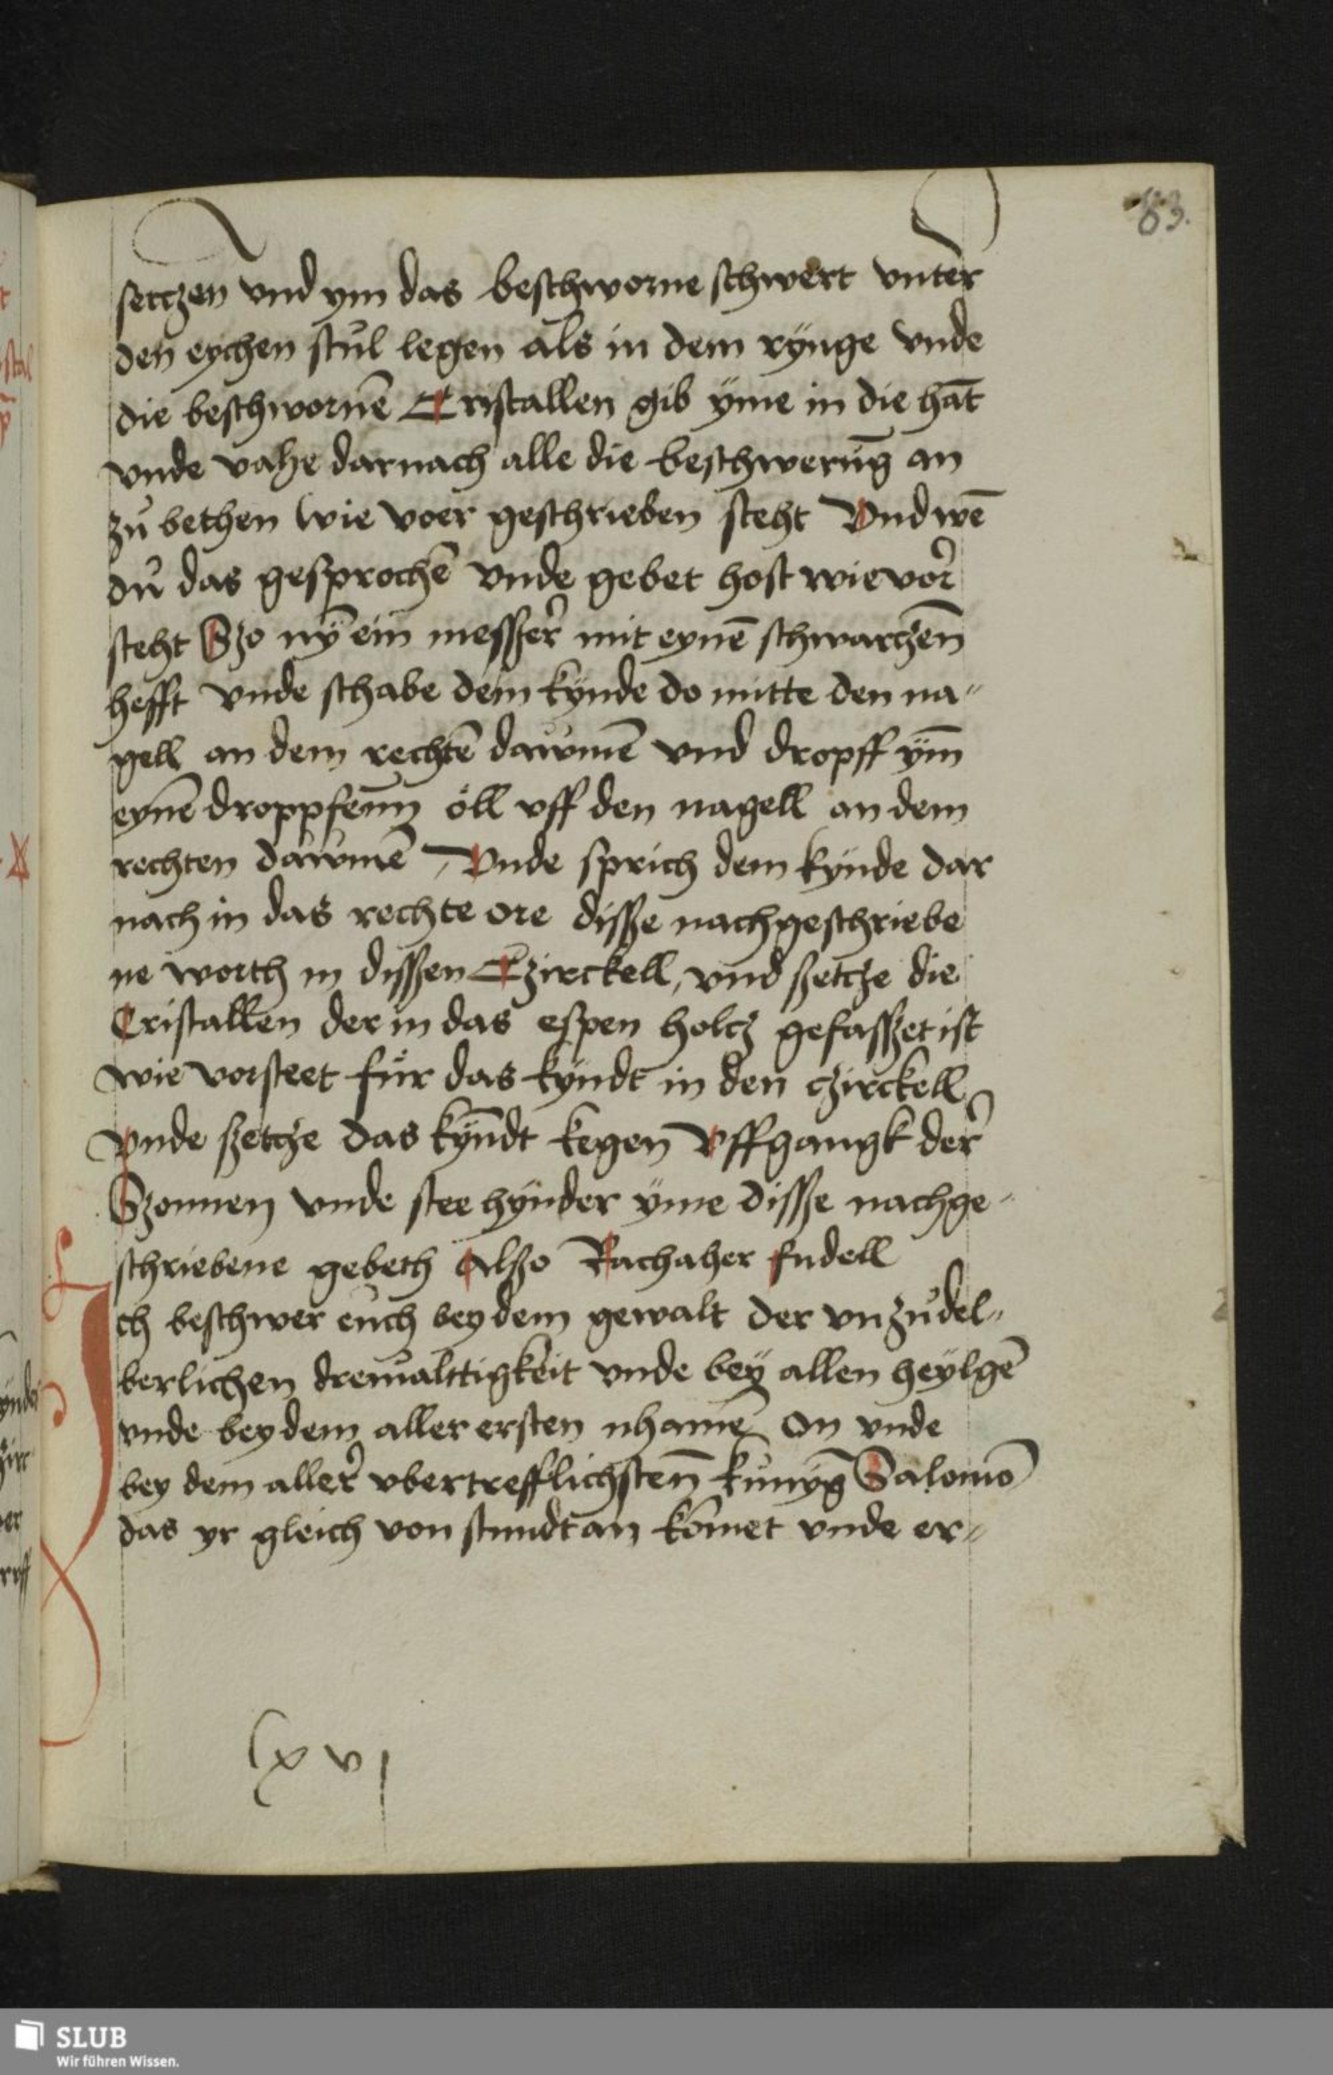 83.
setczen vnd ym das beschworne schwert vnter
den eychen stůl legen als in dem rÿnge vnde
die beschwornē Cristallen gib ÿme in die hāt
vnde vahe darnach alle die beschwerūg an
zů bethen wie voer geschrieben steht Vnd wē
dů das gesprochē vnde gebet host wie vor
steht Szo nȳ ein messzer mit eynē schwarczen
hefft vnde schabe dem kÿnde do mitte den na-
gell an dem rechtē dawmē vnd dropff ÿm
eynē droppfenn öll vff den nagell an dem
rechten dawmē, Vnde sprich dem kÿnde dar
nach in das rechte ore disse nachgeschriebe
ne worth in dissen Czirckell, vnd szetcze die
Cristallen der in das espen holcz gefasszet ist
wie vorsteet für das kÿndt in den czirckell
vnde szetcze das kÿndt kegen Vffgangk der
Szonnen vnde stee hÿnder ÿme disse nachge-
schriebene gebeth Alszo Rachaher fudell
Ich beschwer eůch bey dem gewalt der vnzůdel-
berlichen dreiualttigkeit vnde beÿ allen heÿlgē
vnde bey dem aller ersten nhamē On vnde
bey dem aller vbertrefflichsten kůnÿg Salomō
das yr gleich von stundt an kōmet vnde er-
lxvj
SLUB
Wir führen Wissen.